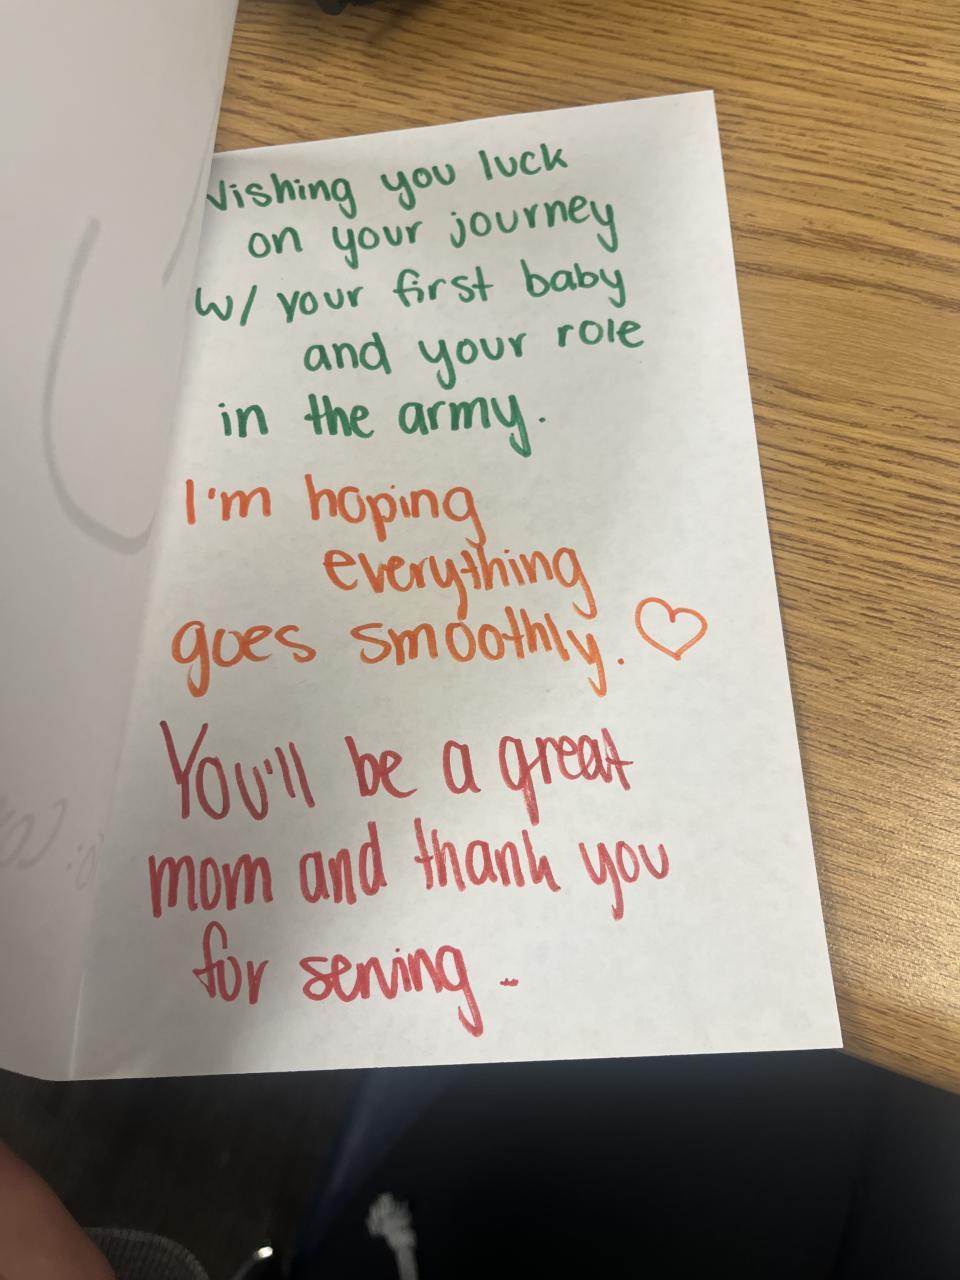 Wishing you luck
on your journey
w/ your first baby
and your role
in the army.
I'm hoping
everything
goes smoothly. ♡
You'll be a great
mom and thank you
for serving -